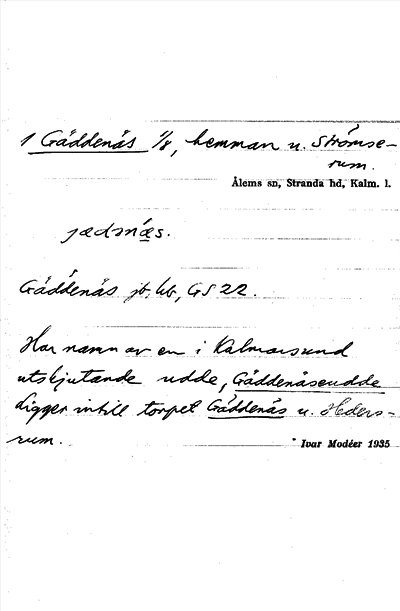 1 Gäddenäs 1/8, hemman u. Strömse-
rum.
Ålems sn, Stranda hd, Kalm. l.
jædnæs.
Gäddenäs jb, kb, GS 22.
Har namn av en i Kalmarsund
utskjutande udde, Gäddenäseudde
Ligger intill torpet Gäddenäs u. Heders-
rum.
Ivar Modéer 1935